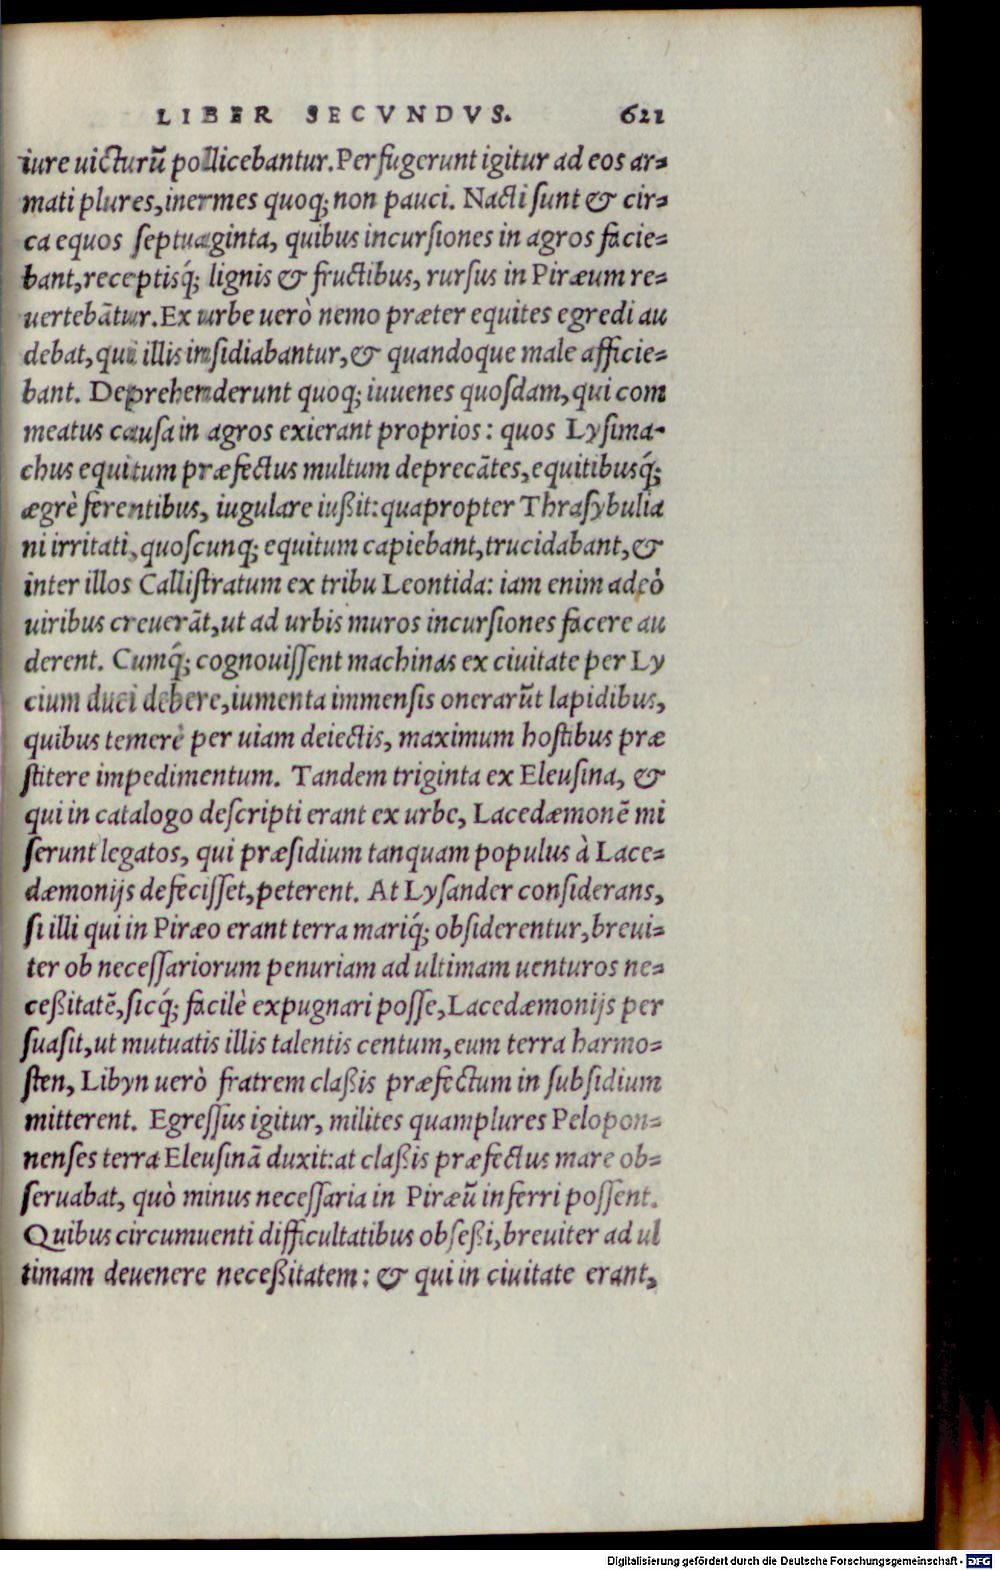 LIBER SECVNDVS. 621
iure uicturũ pollicebantur. Perfugerunt igitur ad eos ar-
mati plures, inermes quoq; non pauci. Nacti sunt & cir-
ca equos septuaginta, quibus incursiones in agros facie-
bant, receptisq́; lignis & fructibus, rursus in Piræum re-
uertebãtur. Ex urbe uerò nemo præter equites egredi au
debat, qui illis insidiabantur, & quandoque male afficie-
bant. Deprehenderunt quoq; iuuenes quosdam, qui com
meatus causa in agros exierant proprios: quos Lysima-
chus equitum præfectus multum deprecãtes, equitibusq́;
ægrè ferentibus, iugulare iußit: quapropter Thrasybulia
ni irritati, quoscunq; equitum capiebant, trucidabant, &
inter illos Callistratum ex tribu Leontida: iam enim adeò
uiribus creuerãt, ut ad urbis muros incursiones facere au
derent. Cumq́; cognouissent machinas ex ciuitate per Ly
cium duci debere, iumenta immensis onerarũt lapidibus,
quibus temerè per uiam deiectis, maximum hostibus præ
stitere impedimentum. Tandem triginta ex Eleusina, &
qui in catalogo descripti erant ex urbe, Lacedæmonẽ mi
serunt legatos, qui præsidium tanquam populus à Lace-
dæmonijs defecisset, peterent. At Lysander considerans,
si illi qui in Piræo erant terra mariq́; obsiderentur, breui-
ter ob necessariorum penuriam ad ultimam uenturos ne-
ceßitatẽ, sicq́; facilè expugnari posse, Lacedæmonijs per
suasit, ut mutuatis illis talentis centum, eum terra harmo-
sten, Libyn uerò fratrem claßis præfectum in subsidium
mitterent. Egressus igitur, milites quamplures Pelopon-
nenses terra Eleusinã duxit: at claßis præfectus mare ob-
seruabat, quò minus necessaria in Piræũ inferri possent.
Quibus circumuenti difficultatibus obseßi, breuiter ad ul
timam deuenere neceßitatem: & qui in ciuitate erant,
Digitalisierung gefördert durch die Deutsche Forschungsgemeinschaft - DFG